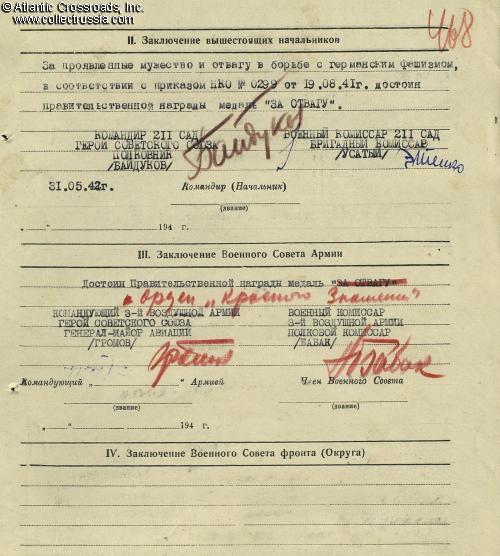 © Atlantic Crossroads, Inc.
www.collectrussia.com
468
II. Заключение вышестоящих начальников
За проявленные мужество и отвагу в борьбе с германским фашизмом,
в соответствии с приказом НКО № 0299 от 19.08.41г. достоин
правительственной награды медаль "ЗА ОТВАГУ".
КОМАНДИР 211 САД ВОЕННЫЙ КОМИССАР 211 САД
ГЕРОЙ СОВЕТСКОГО СОЮЗА БРИГАДНЫЙ КОМИССАР
ПОЛКОВНИК
/БАЙДУКОВ/ /УСАТЫЙ/
Байдуков
31.05.42г. Командир (Начальник)
(звание)
„ “ 194 г.
III. Заключение Военного Совета Армии
Достоин Правительственной награды медаль "ЗА ОТВАГУ"
орден „Красного Знамени“
КОМАНДУЮЩИЙ 3-й ВОЗДУШНОЙ АРМИИ ВОЕННЫЙ КОМИССАР
ГЕРОЙ СОВЕТСКОГО СОЮЗА 3-й ВОЗДУШНОЙ АРМИИ
ГЕНЕРАЛ-МАЙОР АВИАЦИИ ПОЛКОВОЙ КОМИССАР
/ГРОМОВ/ /БАБАК/
Бабак
Командующий „ “ Армией Член Военного Совета
(звание) (звание)
„ “ 194 г.
IV. Заключение Военного Совета фронта (Округа)